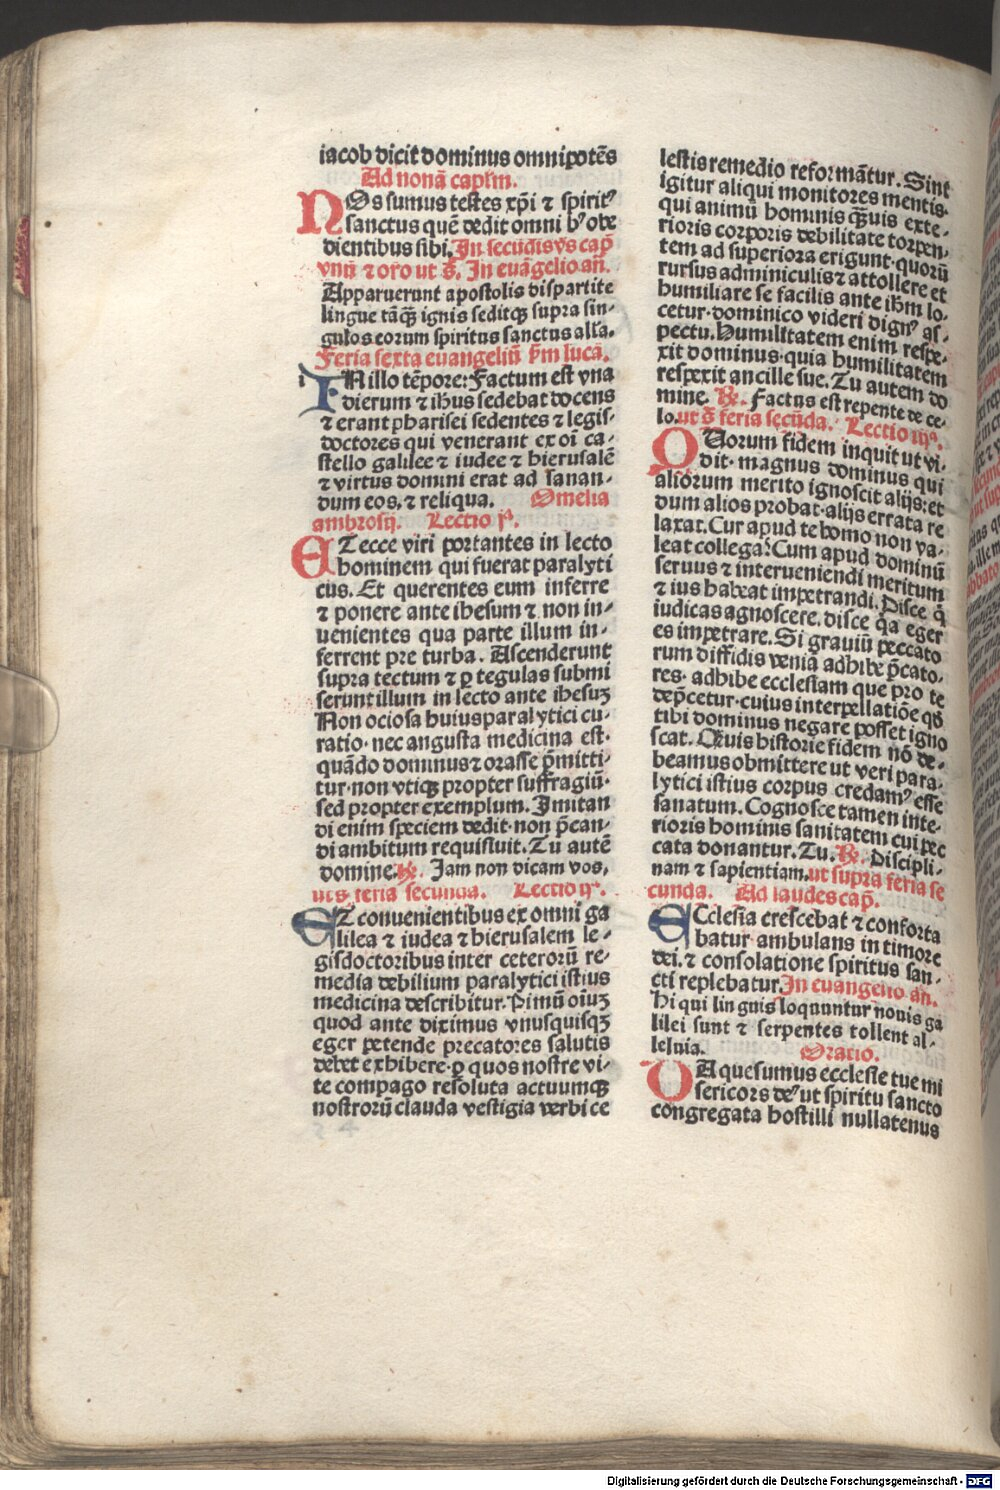 iacob dicit dominus omnipotēs
Ad nonā caplm.
NOs sumus testes xp̄i ⁊ spiritꝰ
sanctus quē dedit omnibꝰ obe
dientibus sibi. In secūdis vs̄ cap̄
vnū ⁊ oro ut s̄. In euāgelio an̄.
Apparuerunt apostolis dispartite
lingue tāq̄ꝫ ignis seditqꝫ supra sin-
gulos eorum spiritus sanctus alla.
Feria sexta euangeliū ẜm lucā.
i IN illo tēpore: Factum est vna
dierum ⁊ ihūs sedebat docens
⁊ erant pharisei sedentes ⁊ legis-
doctores qui venerant ex oī ca-
stello galilee ⁊ iudee ⁊ hierusalē
⁊ virtus domini erat ad sanan-
dum eos. ⁊ reliqua. Omelia
ambrosij. Lectio jª.
ET ecce viri portantes in lecto
hominem qui fuerat paralyti
cus. Et querentes eum inferre
⁊ ponere ante ihesum ⁊ non in-
uenientes qua parte illum in-
ferrent pre turba. Ascenderunt
supra tectum ⁊ ꝑ tegulas submi
serunt illum in lecto ante ihesuꝫ
Non ociosa huius paralytici cu-
ratio· nec angusta medicina est·
quādo dominus ⁊ orasse p̄mitti-
tur· non vtiqꝫ propter suffragiū·
sed propter exemplum. Imitan
di enim speciem dedit· non p̄can-
di ambitum requisiuit. Tu autē
domine. ℟. Jam non dicam vos.
ut s̄ feria secunda. Lectio ijª.
ET conuenientibus ex omni ga
lilea ⁊ iudea ⁊ hierusalem le-
gisdoctoribus inter ceterorū re-
media debilium paralytici istius
medicina describitur. Pimū oīuꝫ
quod ante diximus vnusquisqꝫ
eger petende precatores salutis
debet exhibere· ꝑ quos nostre vi-
te compago resoluta actuumqꝫ
nostrorū clauda vestigia verbi ce
lestis remedio reformātur. Sint
igitur aliqui monitores mentis·
qui animū hominis q̄ꝫuis exte-
rioris corporis debilitate torpen-
tem ad superiora erigunt· quorū
rursus adminiculis ⁊ attollere et
humiliare se facilis ante ihm̄ lo-
cetur· dominico videri dignꝰ as-
pectu. Humilitatem enim respe-
xit dominus· quia humilitatem
respexit ancille sue. Tu autem do
mine. ℟. Factus est repente de ce-
lo. ut s̄ feria secūda. Lectio iijª.
QUorum fidem inquit ut vi-
dit· magnus dominus qui
aliorum merito ignoscit alijs: et
dum alios probat· alijs errata re
laxat. Cur apud te homo non va-
leat collega? Cum apud dominū
seruus ⁊ interueniendi meritum
⁊ ius habeat impetrandi. Disce q̄
iudicas agnoscere. disce q̄a eger
es impetrare. Si grauiū peccato
rum diffidis veniā adhibe p̄cato-
res· adhibe ecclesiam que pro te
dep̄cetur· cuius interpellatiōe qd̄
tibi dominus negare posset igno
scat. Qꝫuis historie fidem nō de-
beamus obmittere ut veri para-
lytici istius corpus credamꝰ esse
sanatum. Cognosce tamen inte-
rioris hominis sanitatem cui pec
cata donantur. Tu. ℟. Discipli-
nam ⁊ sapientiam. ut supra feria se
cunda. Ad laudes cap̄.
ECclesia crescebat ⁊ conforta
batur ambulans in timore
dei. ⁊ consolatione spiritus san-
cti replebatur. In euangelio an̄.
Hi qui linguis loquuntur nouis ga
lilei sunt ⁊ serpentes tollent al-
leluia. Oratio.
DA quesumus ecclesie tue mi
sericors deꝰ ut spiritu sancto
congregata hostilli nullatenus
Digitalisierung gefördert durch die Deutsche Forschungsgemeinschaft - DFG